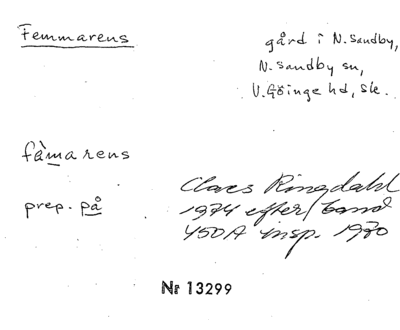 Femmarens
gård i N. Sandby,
N. Sandby sn,
V. Göinge hd, Sk.
fàmarens
prep. på
Claes Ringdahl
1974 efter band
450A insp. 1970
Nr 13299